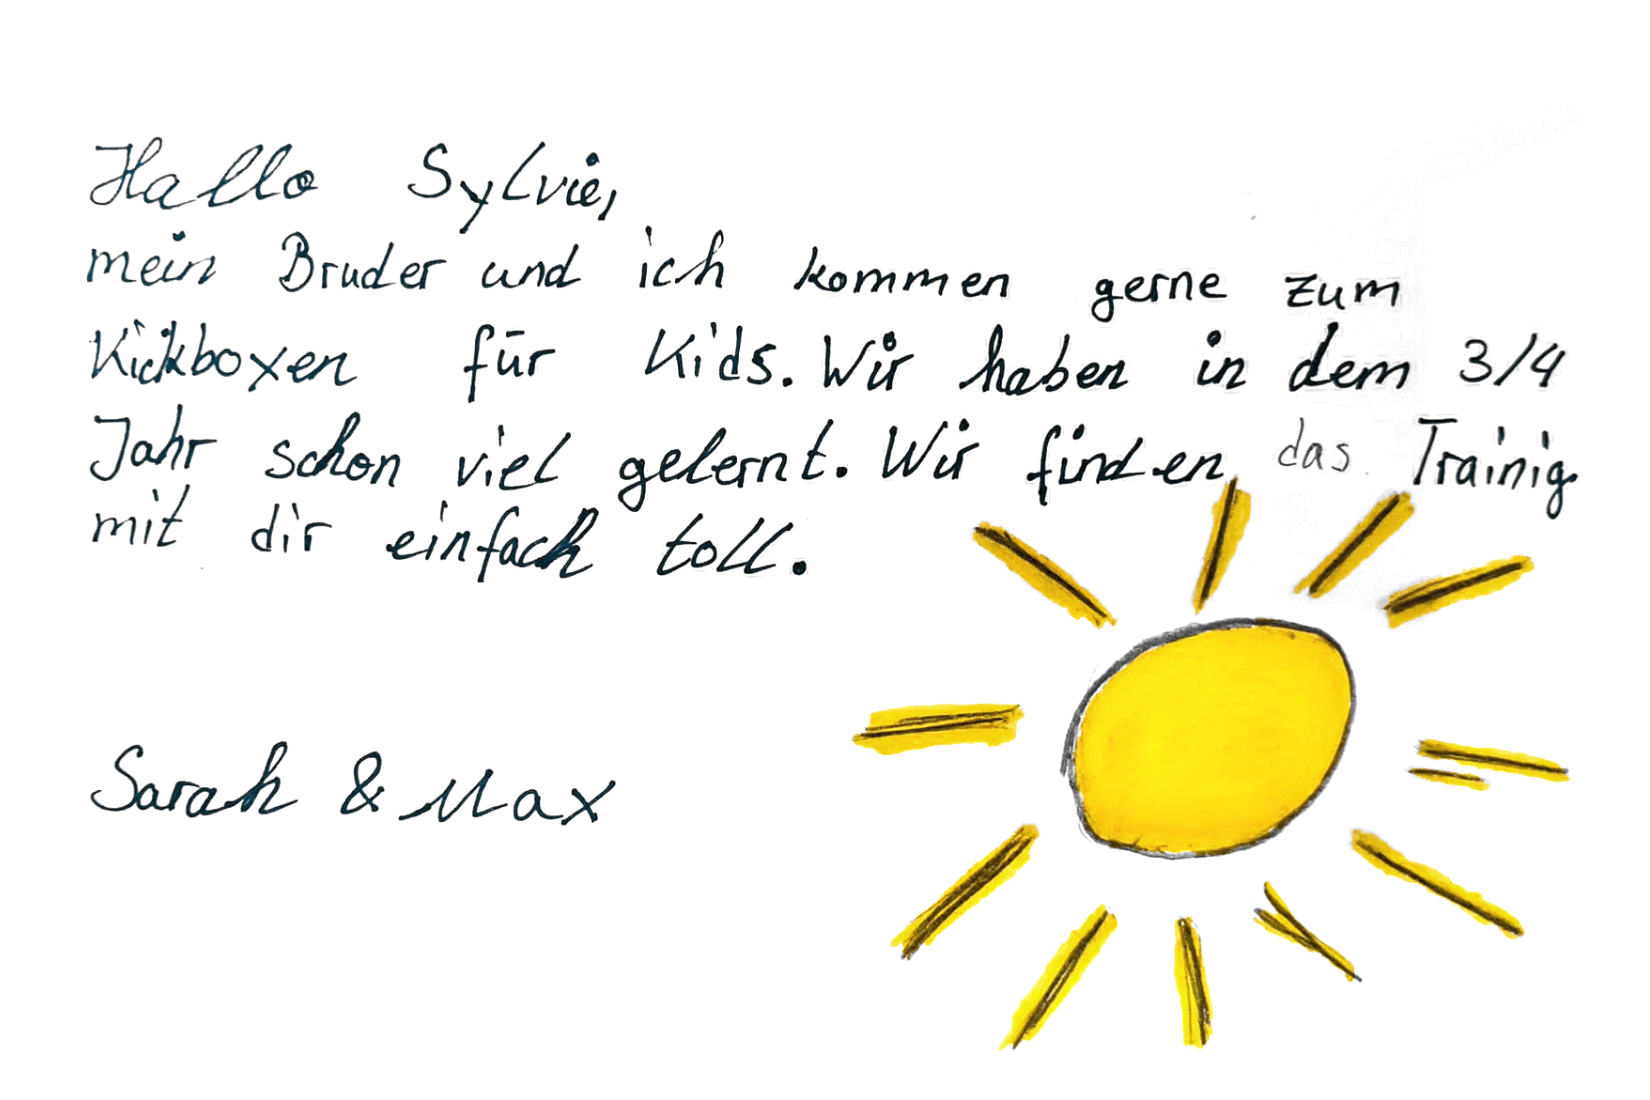 Hallo Sylvie,
mein Bruder und ich kommen gerne zum
Kickboxen für Kids. Wir haben in dem 3/4
Jahr schon viel gelernt. Wir finden das Trainig
mit dir einfach toll.
Sarah & Max